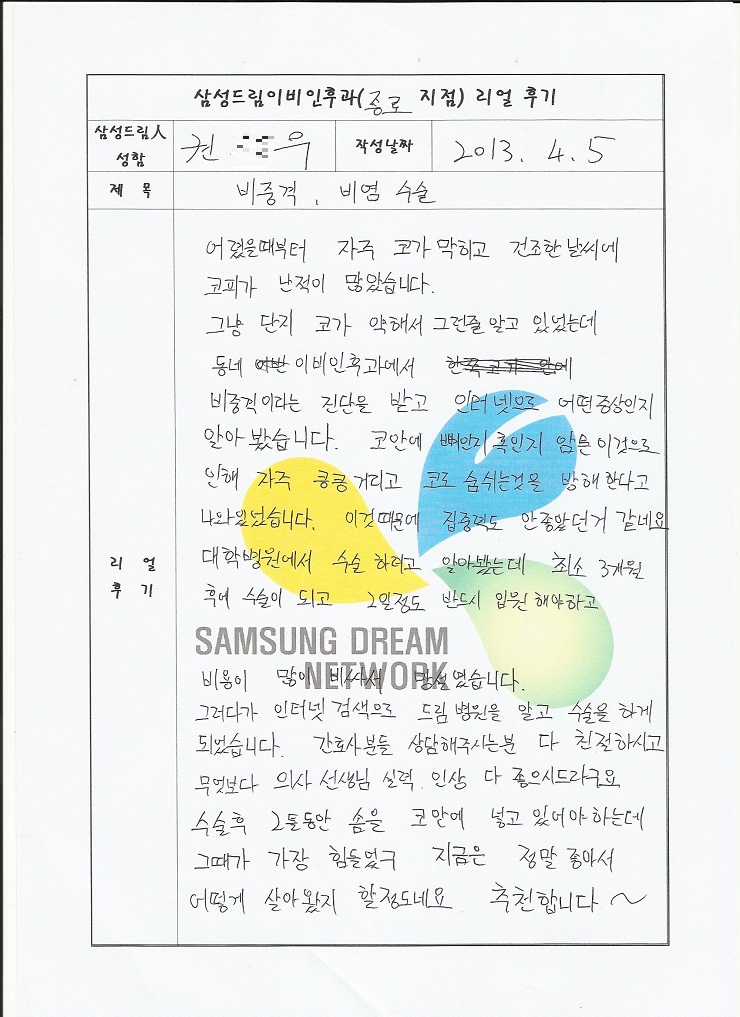 삼성드림이비인후과(종로 지점) 리얼 후기
삼성드림人 성함 권 우 작성날짜 2013. 4. 5
제 목 비중격, 비염 수술
리 얼 후 기
어렸을때부터 자주 코가 막히고 건조한 날씨에
코피가 난적이 많았습니다.
그냥 단지 코가 약해서 그런줄 알고 있었는데
동네 이비인후과에서
비중격이라는 진단을 받고 인터넷으로 어떤증상인지
알아봤습니다. 코안에 뼈인지 혹인지 암튼 이것으로
인해 자주 킁킁거리고 코로 숨쉬는것을 방해한다고
나와있었습니다. 이것때문에 집중력도 안좋았던거 같네요
대학병원에서 수술 하려고 알아봤는데 최소 3개월
후에 수술이 되고 2일정도 반드시 입원 해야하고
SAMSUNG DREAM
NETWORK
비용이 많이 비싸서 망설였습니다.
그러다가 인터넷 검색으로 드림병원을 알고 수술을 하게
되었습니다. 간호사분들 상담해주시는분 다 친절하시고
무엇보다 의사 선생님 실력. 인상 다 좋으시드라구요
수술후 2틀동안 솜을 코안에 넣고 있어야 하는데
그때가 가장 힘들었구 지금은 정말 좋아서
어떻게 살아왔지 할정도네요 추천합니다 ~